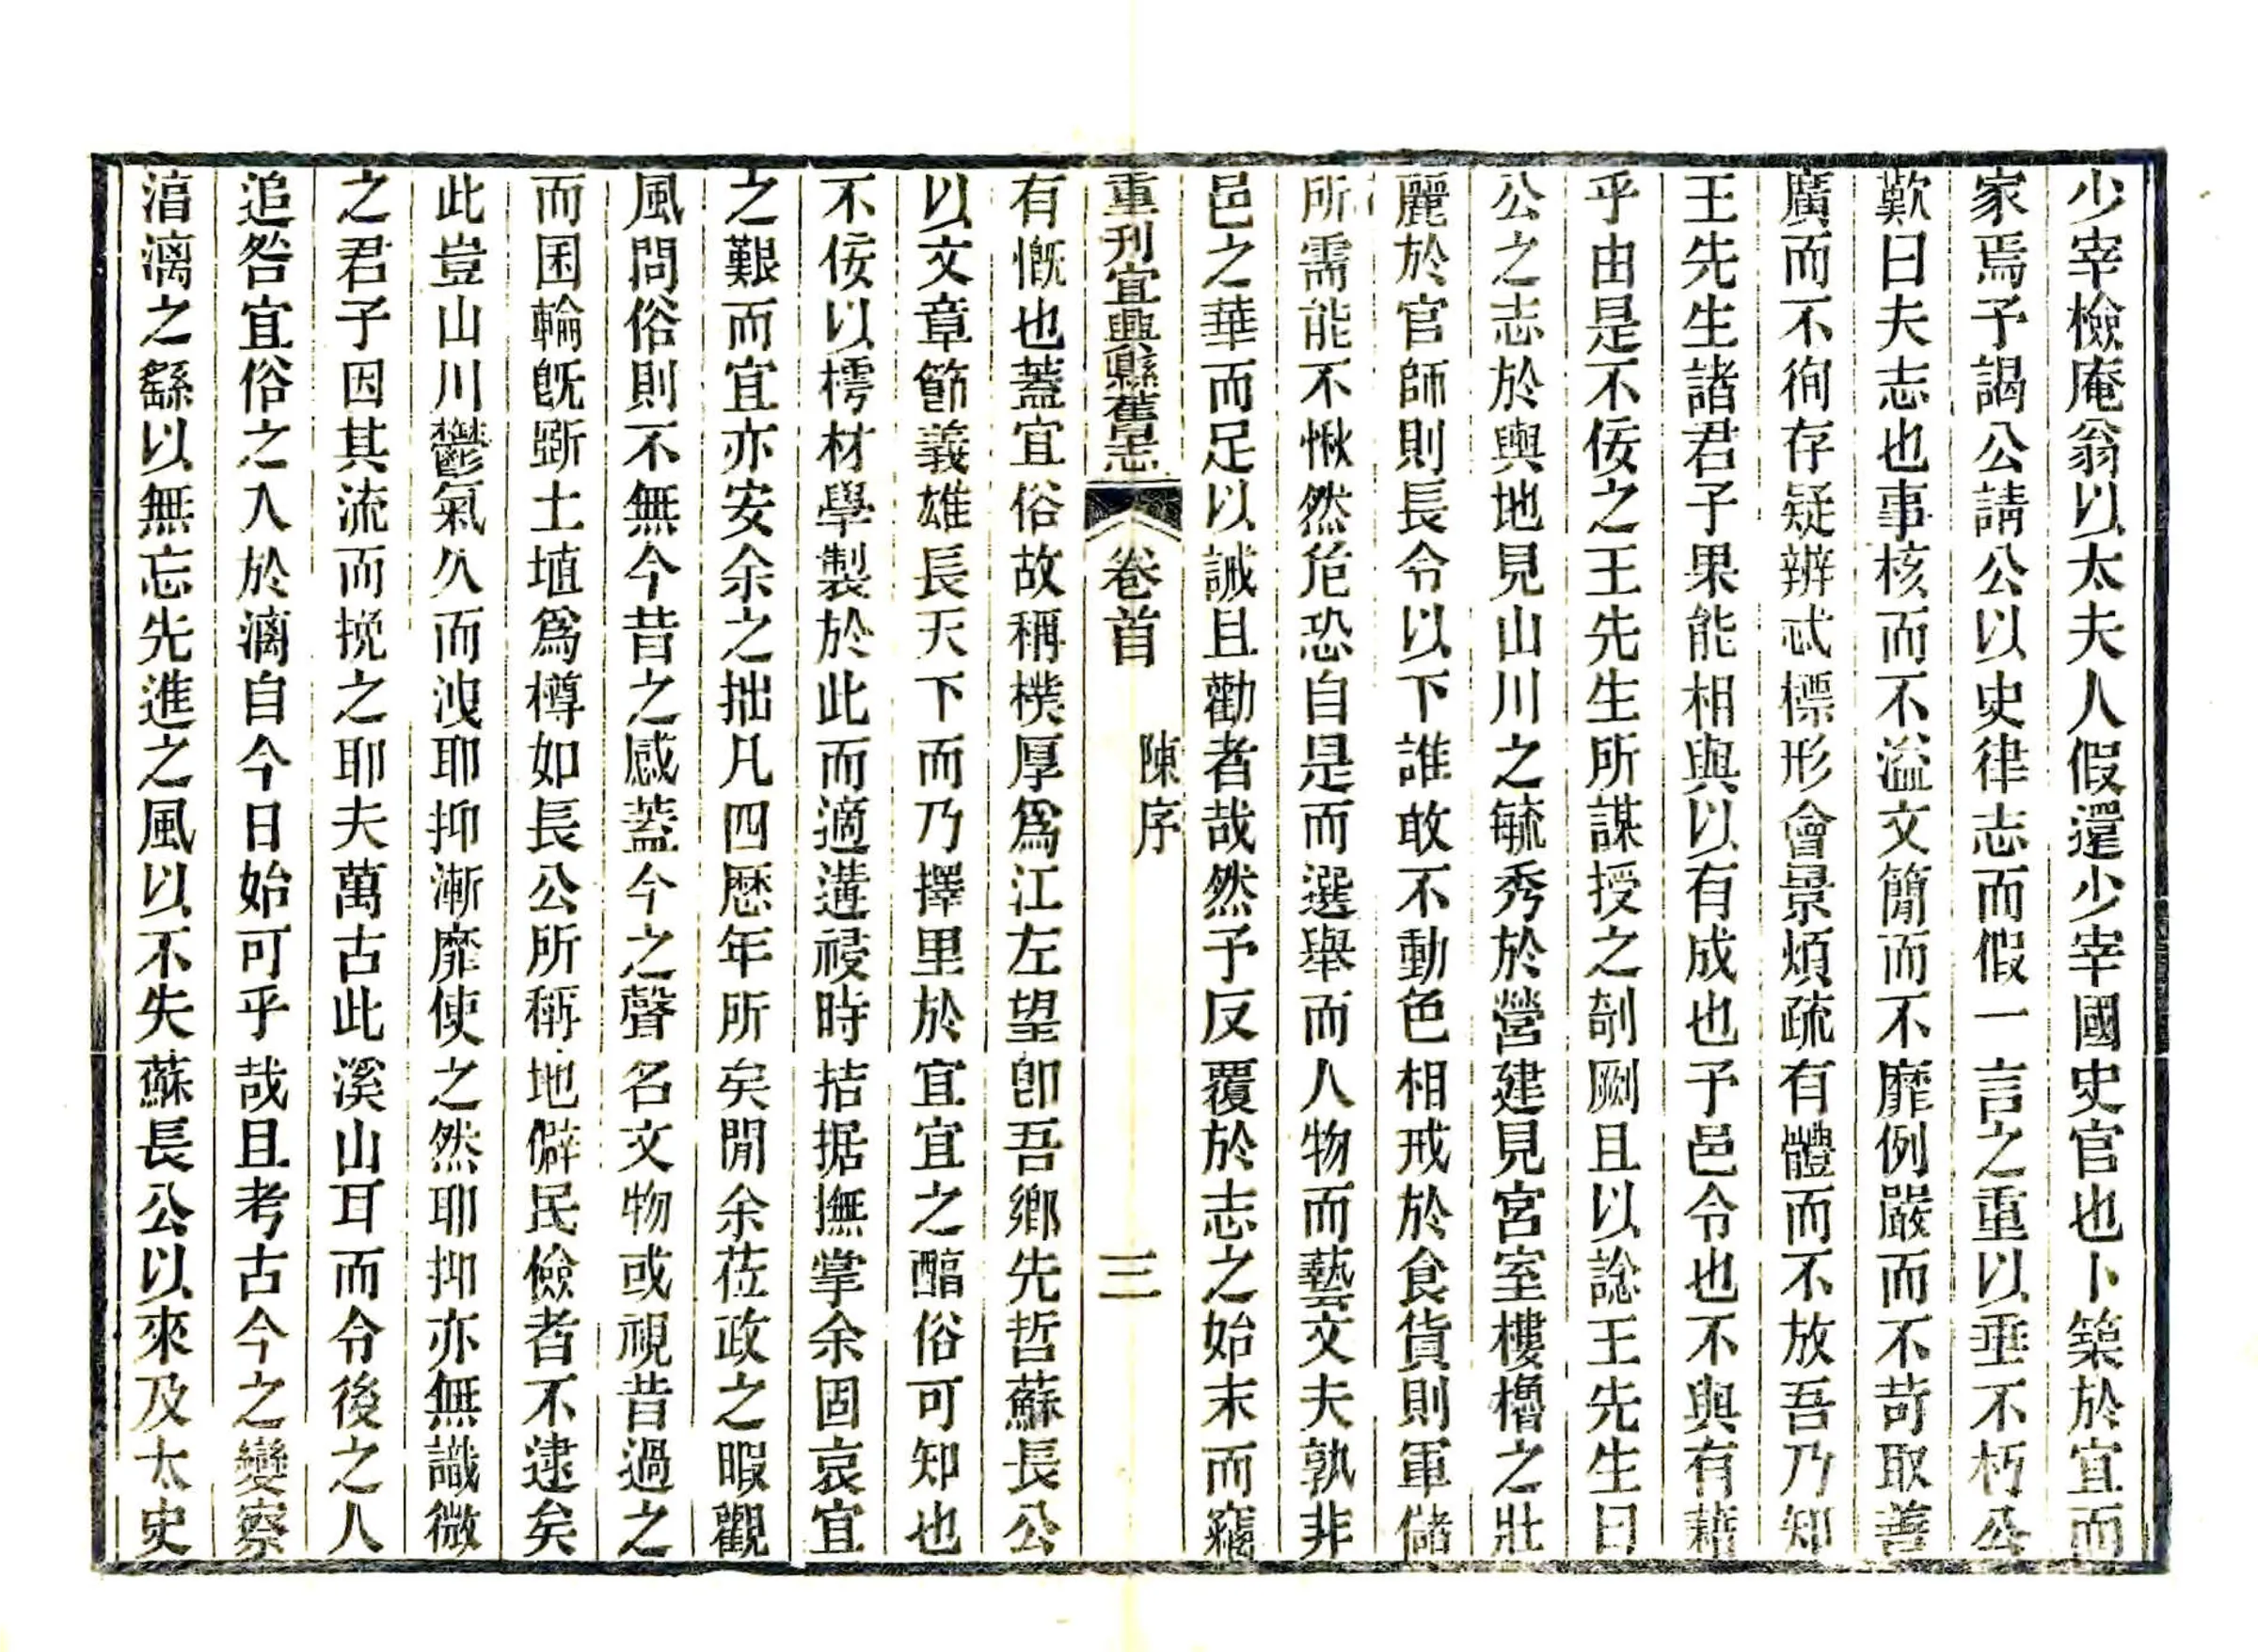 少宰檢庵翁以太夫人假還少宰國史官也卜築於宜而
家焉予謁公請公以史律志而假一言之重以垂不朽公
歎曰夫志也事核而不溢文簡而不靡例嚴而不苛取善
廣而不徇存疑辨忒標形會景煩疏有體而不放吾乃知
王先生諸君子果能相與以有成也予邑令也不與有藉
乎由是不佞之王先生所謀授之剞劂且以諗王先生曰
公之志於輿地見山川之毓秀於營建見宮室樓櫓之壯
麗於官師則長令以下誰敢不動色相戒於食貨則軍儲
所需能不愀然危恐自是而選舉而人物而藝文夫孰非
邑之華而足以誡且勸者哉然予反覆於志之始末而竊
重刊宜興縣舊志 卷首 陳序 三
有慨也蓋宜俗故稱樸厚爲江左望卽吾鄉先哲蘇長公
以文章節義雄長天下而乃擇里於宜宜之醞俗可知也
不佞以樗材學製於此而適遘祲時拮据撫掌余固哀宜
之艱而宜亦安余之拙凡四歷年所矣閒余莅政之暇觀
風問俗則不無今昔之感蓋今之聲名文物或視昔過之
而囷輪旣斲土埴爲樽如長公所稱地僻民儉者不逮矣
此豈山川鬱氣久而洩耶抑漸靡使之然耶抑亦無識微
之君子因其流而挽之耶夫萬古此溪山耳而令後之人
追咎宜俗之入於漓自今日始可乎哉且考古今之變察
湻漓之繇以無忘先進之風以不失蘇長公以來及太史